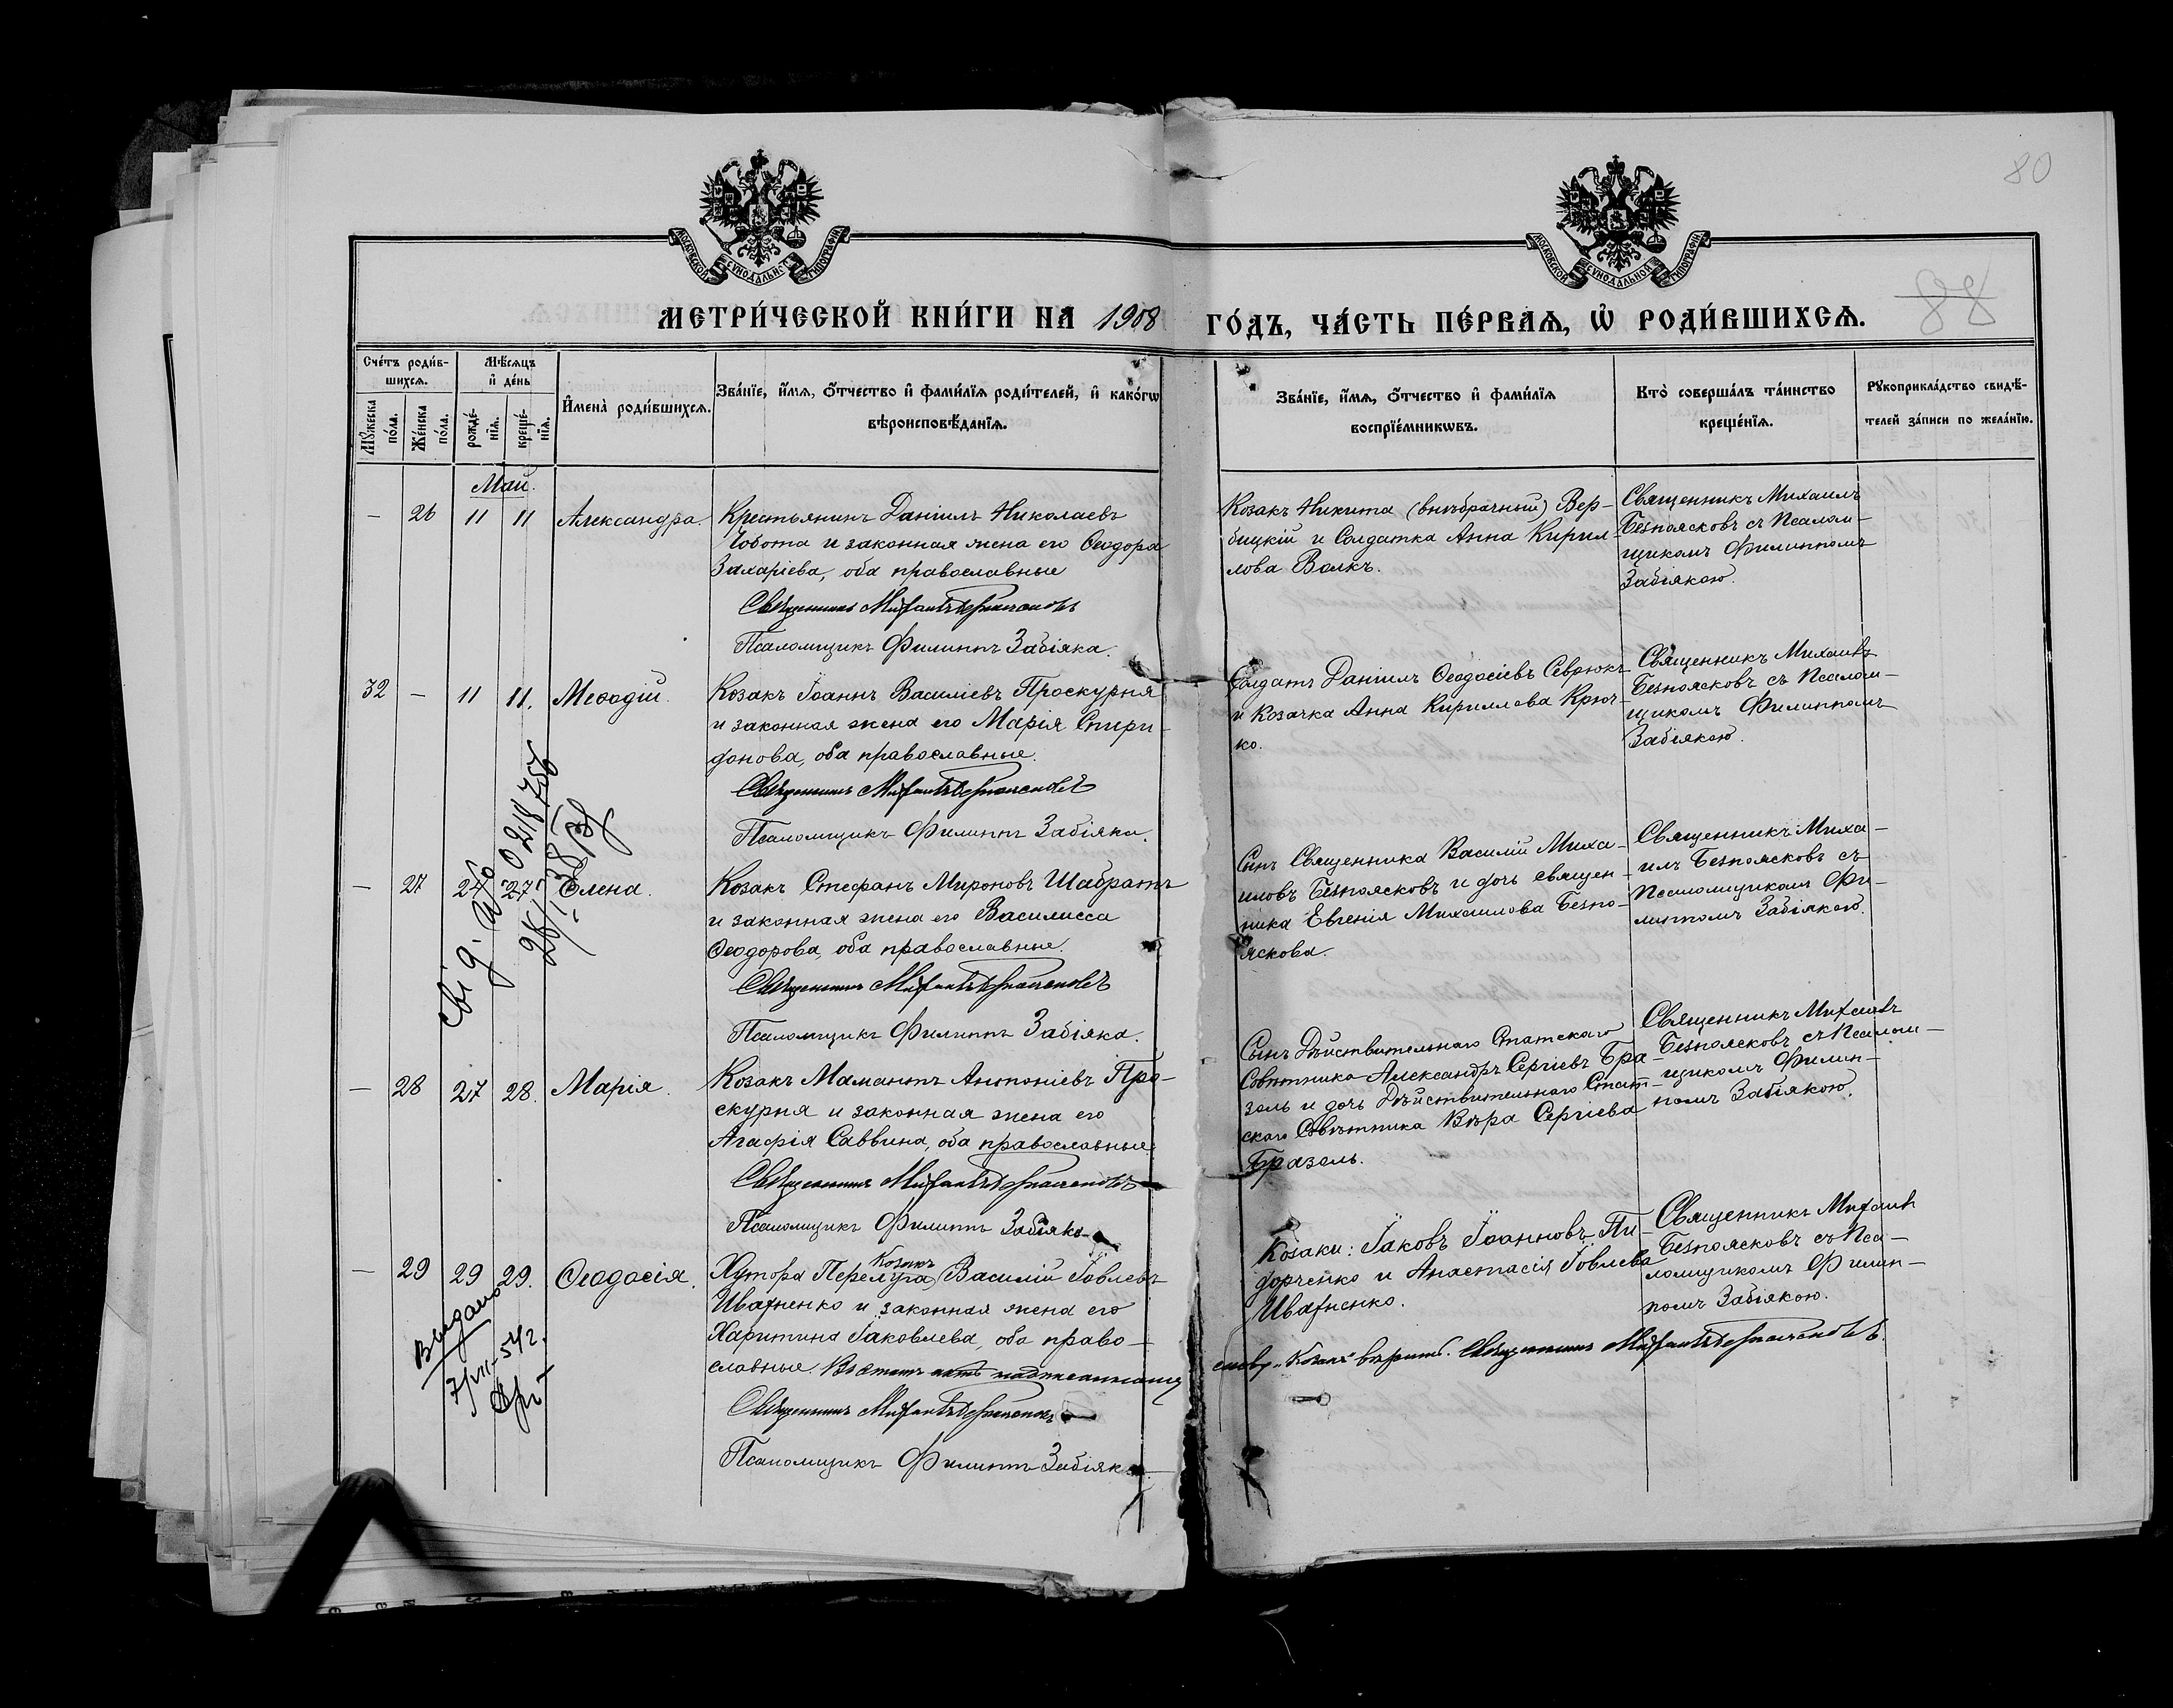 80
МОСКОВСКОЙ СѴНОДАЛЬНОЙ ТИПОГРАФІИ
МОСКОВСКОЙ СѴНОДАЛЬНОЙ ТИПОГРАФІИ
88
МЕТРИ́ЧЕСКОЙ КНИ́ГИ НА 1908 ГО́ДЪ, ЧА́СТЬ ПЕ́РВАѦ, Ѡ҆ РОДИ́ВШИХСѦ.
Сче́тъ роди́в-
шихсѧ.
Мꙋ́жеска
по́ла.
Же́нска
по́ла.
Мѣ́сѧцъ
и҆ де́нь
рожде́-
нїѧ.
креще́-
нїѧ.
И҆мена̀ роди́вшихсѧ.
Зва́нїе, и҆́мѧ, ѻ҆́тчество и҆ фами́лїѧ роди́телей, и҆ како́гѡ
вѣроисповѣ́данїѧ.
Зва́нїе, и҆́мѧ, ѻ҆́тчество и҆ фами́лїѧ
воспрїе́мникѡвъ.
Кто̀ соверша́лъ та́инство
креще́нїѧ.
Рꙋкоприкла́дство свидѣ́-
телей за́писи по жела́нїю.
Май.
— 26 11 11 Александра.
Крестьянинъ Даніилъ Николаевъ
Чобота и законная жена его Ѳеодора
Захаріева, оба православные
Священникъ Михаилъ Безпоясковъ
Псаломщикъ Филиппъ Забіяка.
Козакъ Никита (внѣбрачный) Вер-
бицкій и Солдатка Анна Кирил-
лова Волкъ.
Священникъ Михаилъ
Безпоясковъ съ Псалом-
щикомъ Филиппомъ
Забіякою.
32 — 11 11. Меѳодій.
Козакъ Іоаннъ Василіевъ Проскурня
и законная жена его Марія Спири-
донова, оба православные.
Священникъ Михаилъ Безпоясковъ
Псаломщикъ Филиппъ Забіяка.
Солдатъ Даніилъ Ѳеодосіевъ Севрюкъ
и Козачка Анна Кириллова Крюч-
ко.
Священникъ Михаилъ
Безпоясковъ съ Псалом-
щикомъ Филиппомъ
Забіякою.
— 27 24 27 Елена.
Козакъ Стефанъ Мироновъ Шабратъ
и законная жена его Василисса
Ѳеодорова, оба православные.
Священникъ Михаилъ Безпоясковъ
Псаломщикъ Филиппъ Забіяка.
Сынъ Священника Василій Миха-
иловъ Безпоясковъ и дочь священ-
ника Евгенія Михаилова Безпо-
яскова.
Священникъ Миха-
илъ Безпоясковъ съ
Псаломщикомъ Фи-
липпомъ Забіякою.
— 28 27 28. Марія.
Козакъ Мамантъ Антоніевъ Про-
скурня и законная жена его
Агафія Саввина, оба православные
Священникъ Михаилъ Безпоясковъ
Псаломщикъ Филиппъ Забіяка
Сынъ Дѣйствительнаго Статскаго
Совѣтника Александръ Сергіевъ Бра-
золь и дочь Дѣйствительнаго Стат-
скаго Совѣтника Вѣра Сергіева
Бразоль.
Священникъ Михаилъ
Безпоясковъ съ Псалом-
щикомъ Филип-
помъ Забіякою.
— 29 29 29. Ѳеодосія.
Козакъ
Хутора Перелуга, Василій Іовлевъ
Ивахненко и законная жена его
Харитина Іаковлева, оба право-
славные. Въ статьѣ надписанному
слову „Козакъ" вѣрить. Священникъ Михаилъ Безпоясковъ.
Священникъ Михаилъ Безпоясковъ
Псаломщикъ Филиппъ Забіяка.
Козаки: Іаковъ Іоанновъ Пи-
дорченко и Анастасія Іовлева
Ивахненко.
Священникъ Михаилъ
Безпоясковъ съ Пса-
ломщикомъ Филип-
помъ Забіякою.
Выдано
7/VII-54 г.